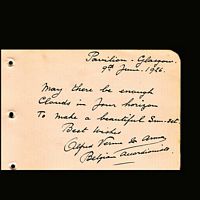 Pavilion - Glasgow.
9th June. 1926.
May there be enough
Clouds in your horizon
To make a beautiful Sun-set
Best wishes
Alfred Verne &
Belgian Accordionists.